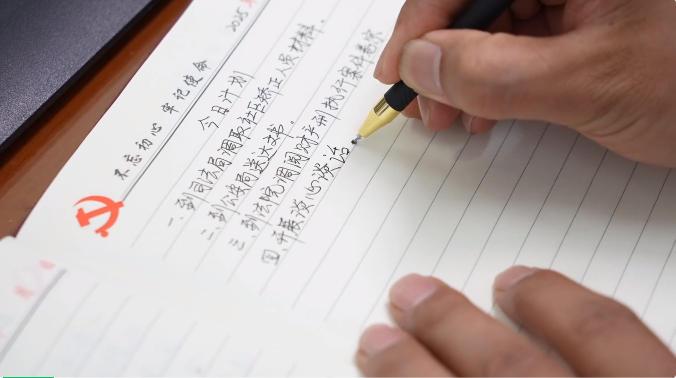 不忘初心 牢记使命
2025
今日计划
一、到司法局调取社区矫正人员材料。
二、到公安局送达文书。
三、到法院调阅财产刑执行案件卷宗
四、开展谈心谈话